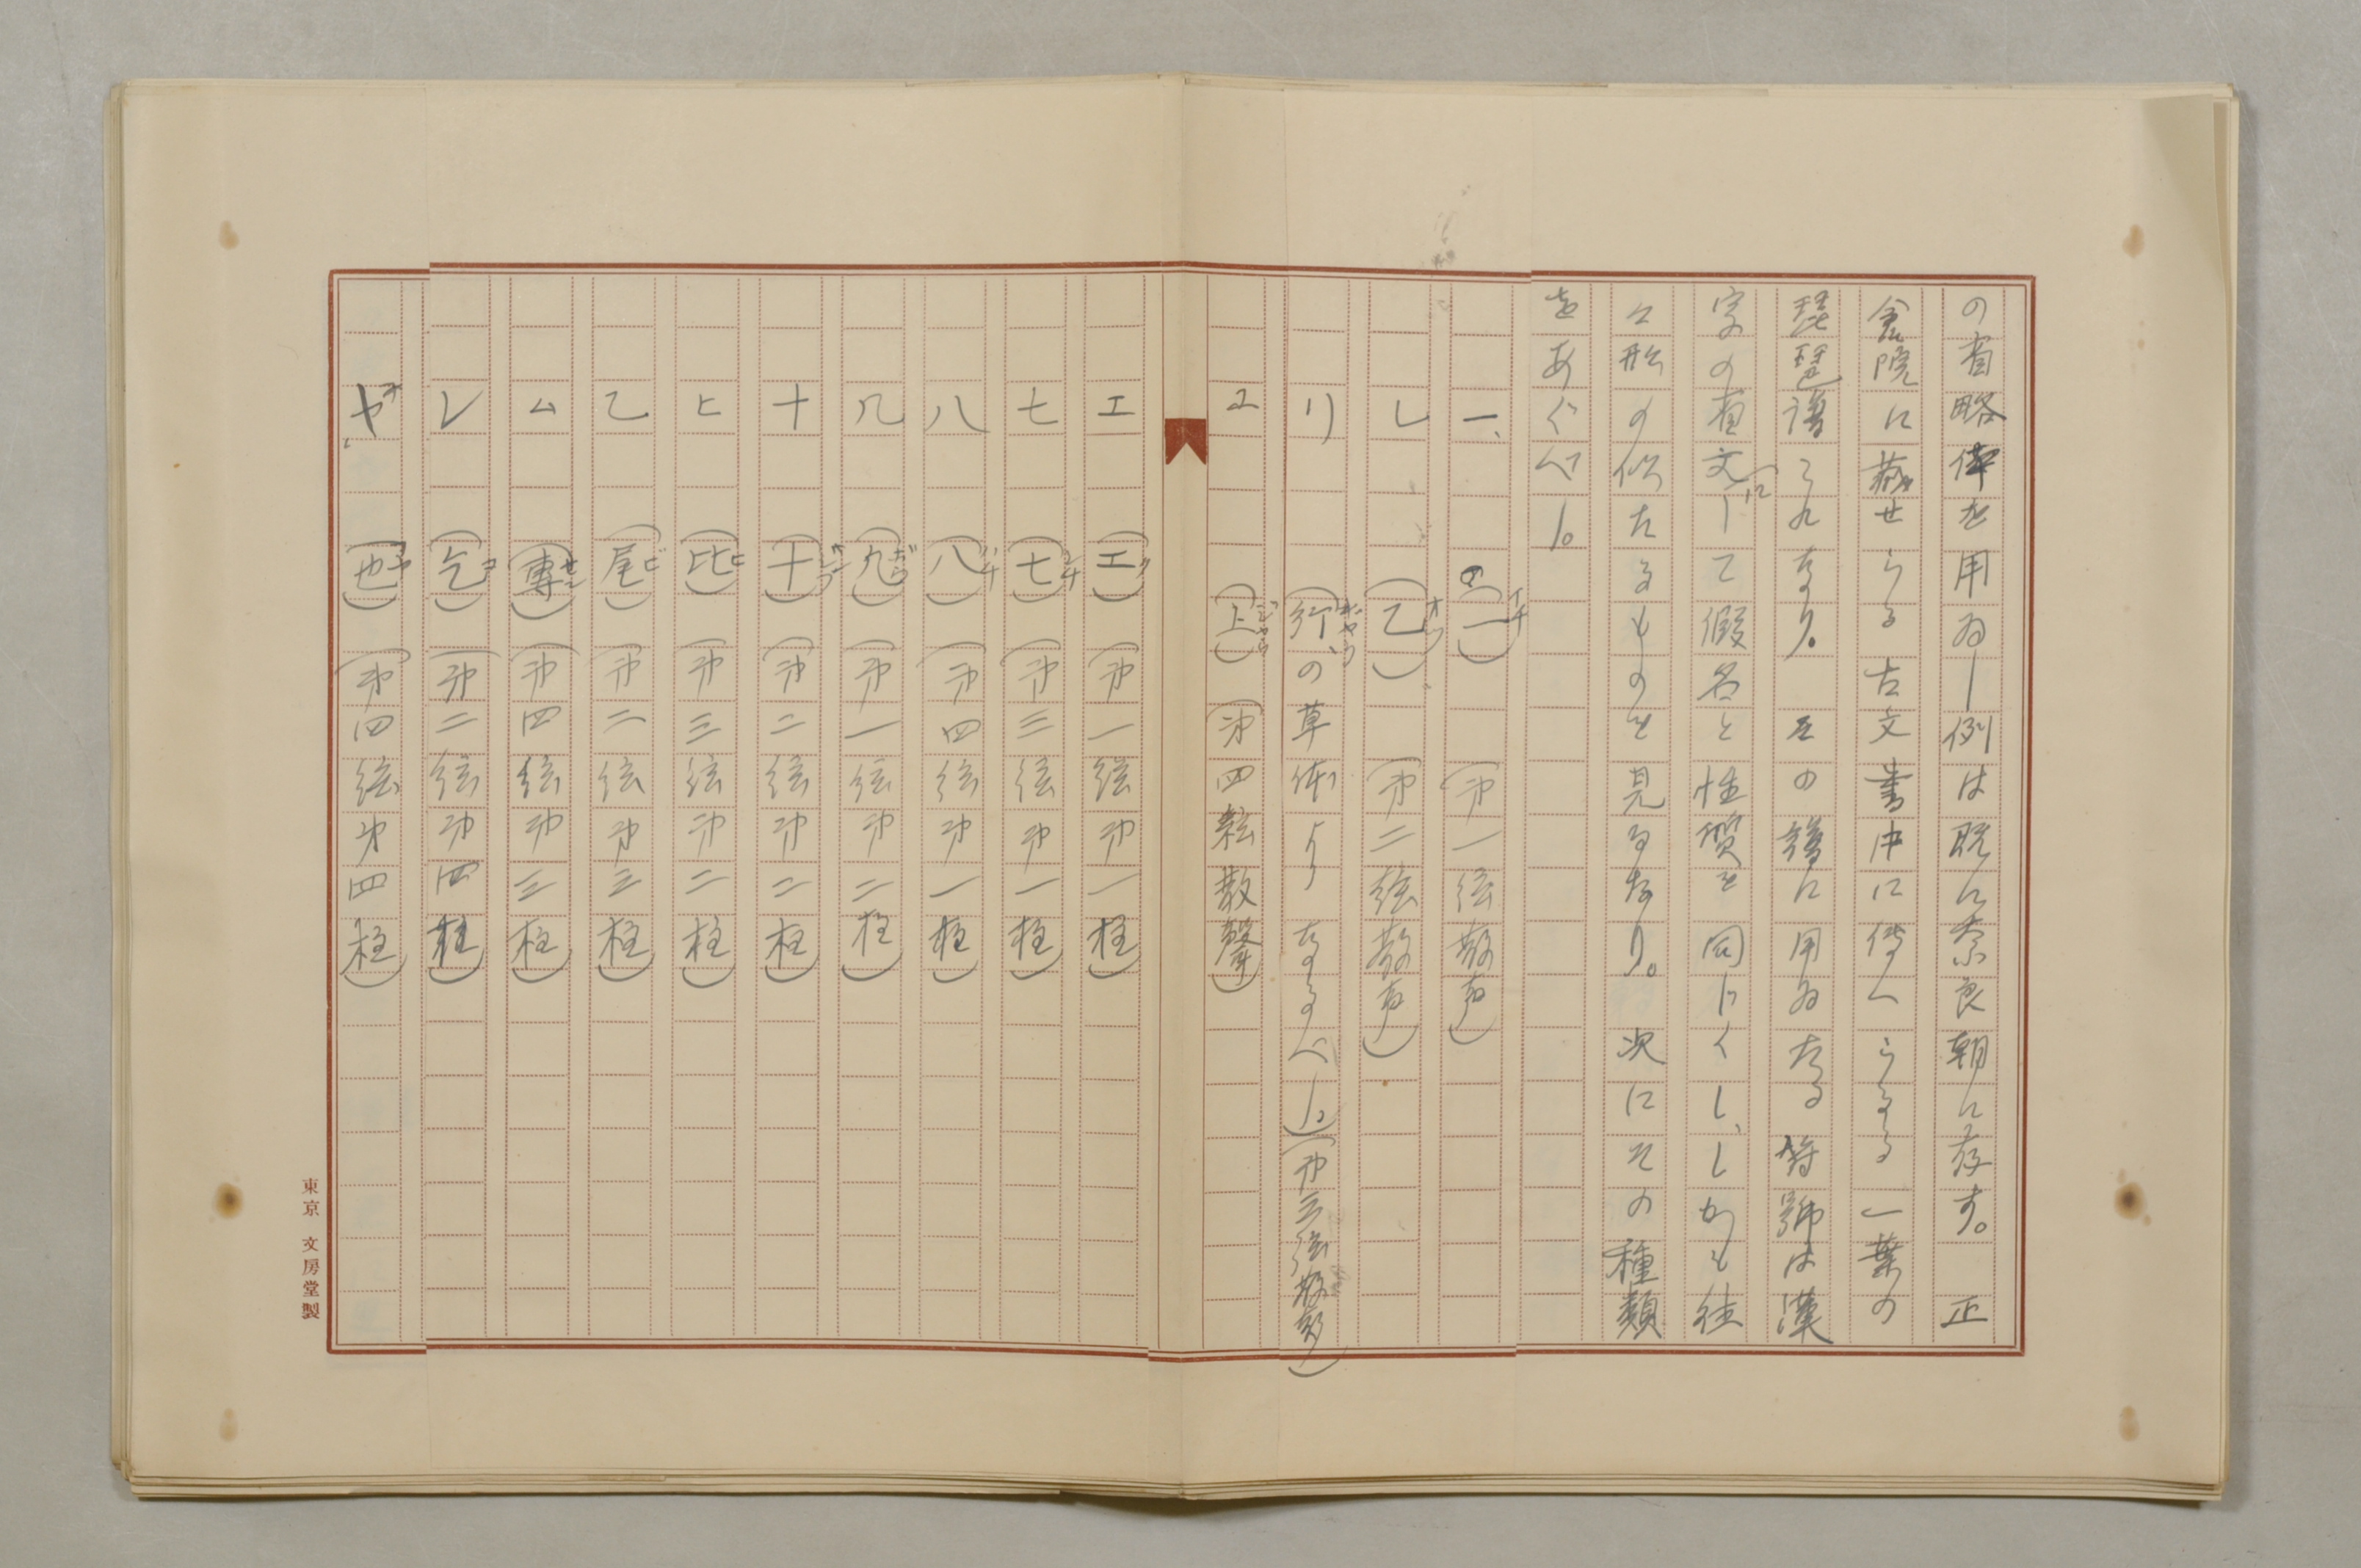 の省略体を用ゐし例は既に奈良朝に存す。正
倉院に蔵せらる古文書中に傳へらるる一葉の
琵琶譜これなり。その譜に用ゐたる符號は漢
字の省文にして假名と性質を同じくし、しかも往
々形の似たるものを見るなり。次にその種類
をあぐべし。
一、(一)イチ (第一絃散声)
し (乙)オツ (第二絃散声)
リ (行ギャウの草体よりなるべし。)(第三絃散声)
ユ (上)ジャウ (第四絃散聲)
エ (工)ク (第一絃第一柱)
七 (七)シチ (第三絃第一柱)
八 (八)ハチ (第四絃第一柱)
几 (凢)ボウ (第一絃第二柱)
十 (十)ジフ (第二絃第二柱)
ヒ (比)ヒ (第三絃第二柱)
乙 (尾)ビ (第二絃第三柱)
ム (専)セン (第四絃第三柱)
レ (乞)コ (第二絃第四柱)
ヤ (也)ヤ (第四絃第四柱)
東京 文房堂製